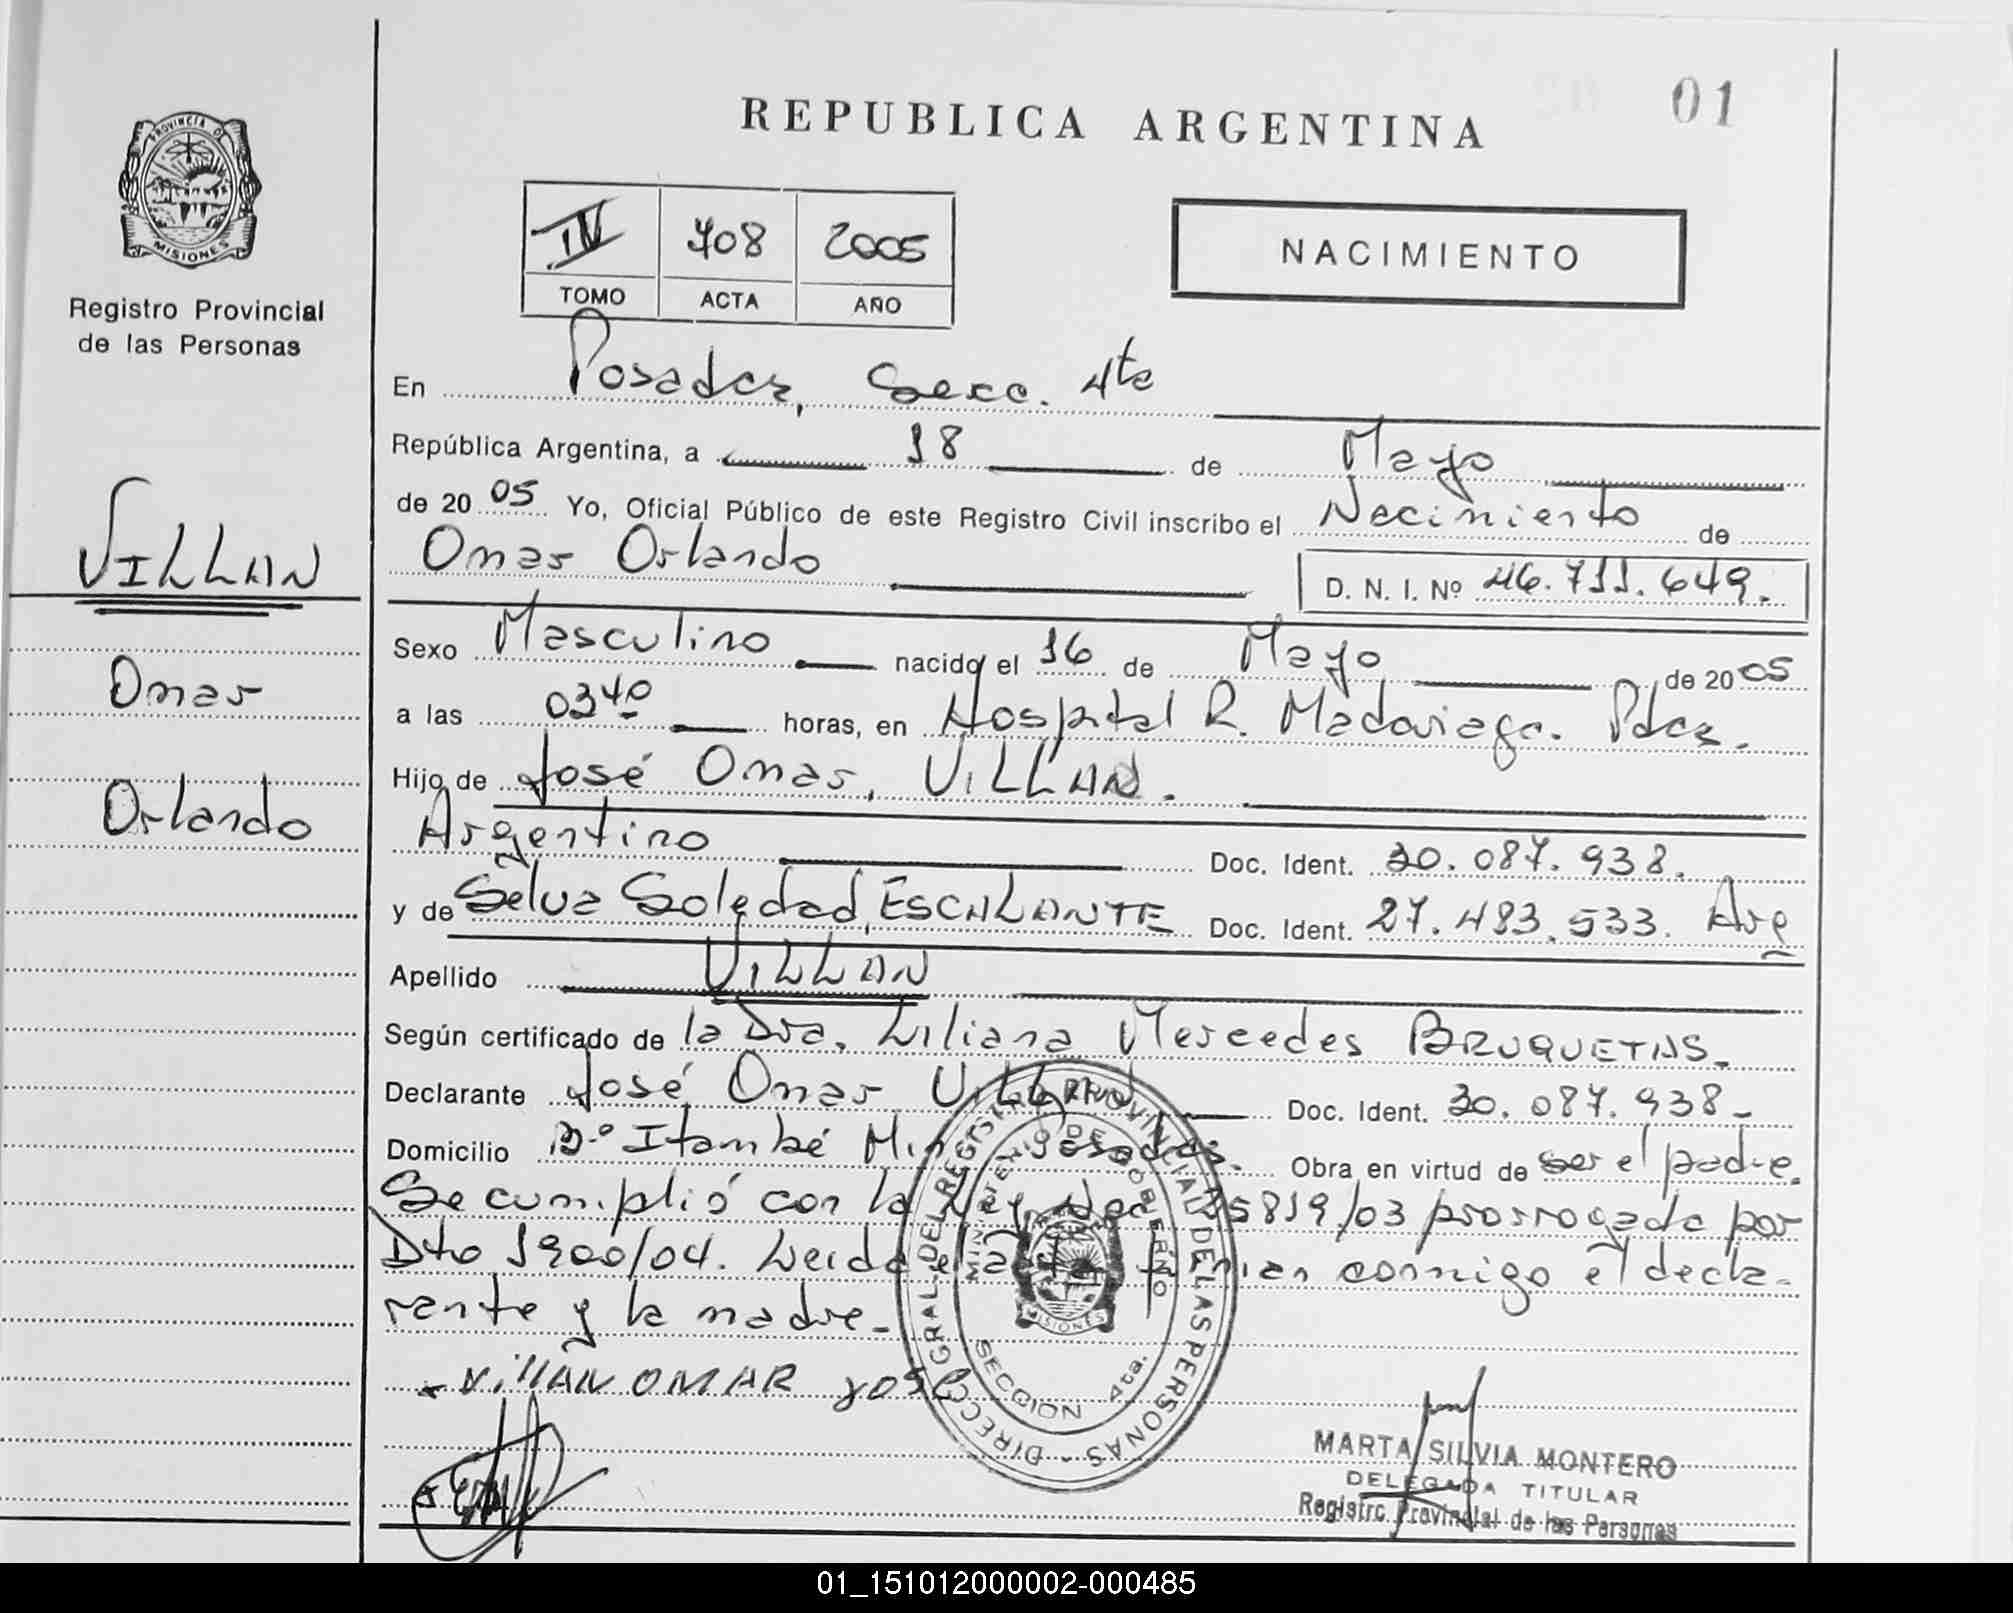 REPUBLICA ARGENTINA
01
PROVINCIA DE
MISIONES
Registro Provincial
de las Personas
IV 708 2005
TOMO ACTA AÑO
NACIMIENTO
En Posadas, Secc. 4ta
República Argentina, a 18 de Mayo
de 2005 Yo, Oficial Público de este Registro Civil inscribo el Nacimiento de
Omar Orlando
D. N. I. Nº 46.711.649.
VILLAN
Omar
Orlando
Sexo Masculino nacido el 16 de Mayo de 2005
a las 0340 horas, en Hospital R. Madariaga. Pdas.
Hijo de José Omar, VILLAN.
Argentino Doc. Ident. 30.087.938.
y de Selva Soledad, ESCALANTE Doc. Ident. 27.483.533. Arg
Apellido VILLAN
Según certificado de la Dra. Liliana Mercedes BRUQUETAS.
Declarante José Omar VILLAN Doc. Ident. 30.087.938-
Domicilio Bº Itambé Miní Posadas. Obra en virtud de ser el padre.
Se cumplió con la Ley Nac 25819/03 prorrogada por
Dto 1900/04. Leida el acta firman conmigo el decla-
rante y la madre-
VillAN OMAR José
DIRECC. GRAL. DEL REGISTRO PROVINCIAL DE LAS PERSONAS
MINISTERIO DE GOBIERNO
MISIONES
SECCION 4ta.
MARTA SILVIA MONTERO
DELEGADA TITULAR
Registro Provincial de las Personas
01_151012000002-000485